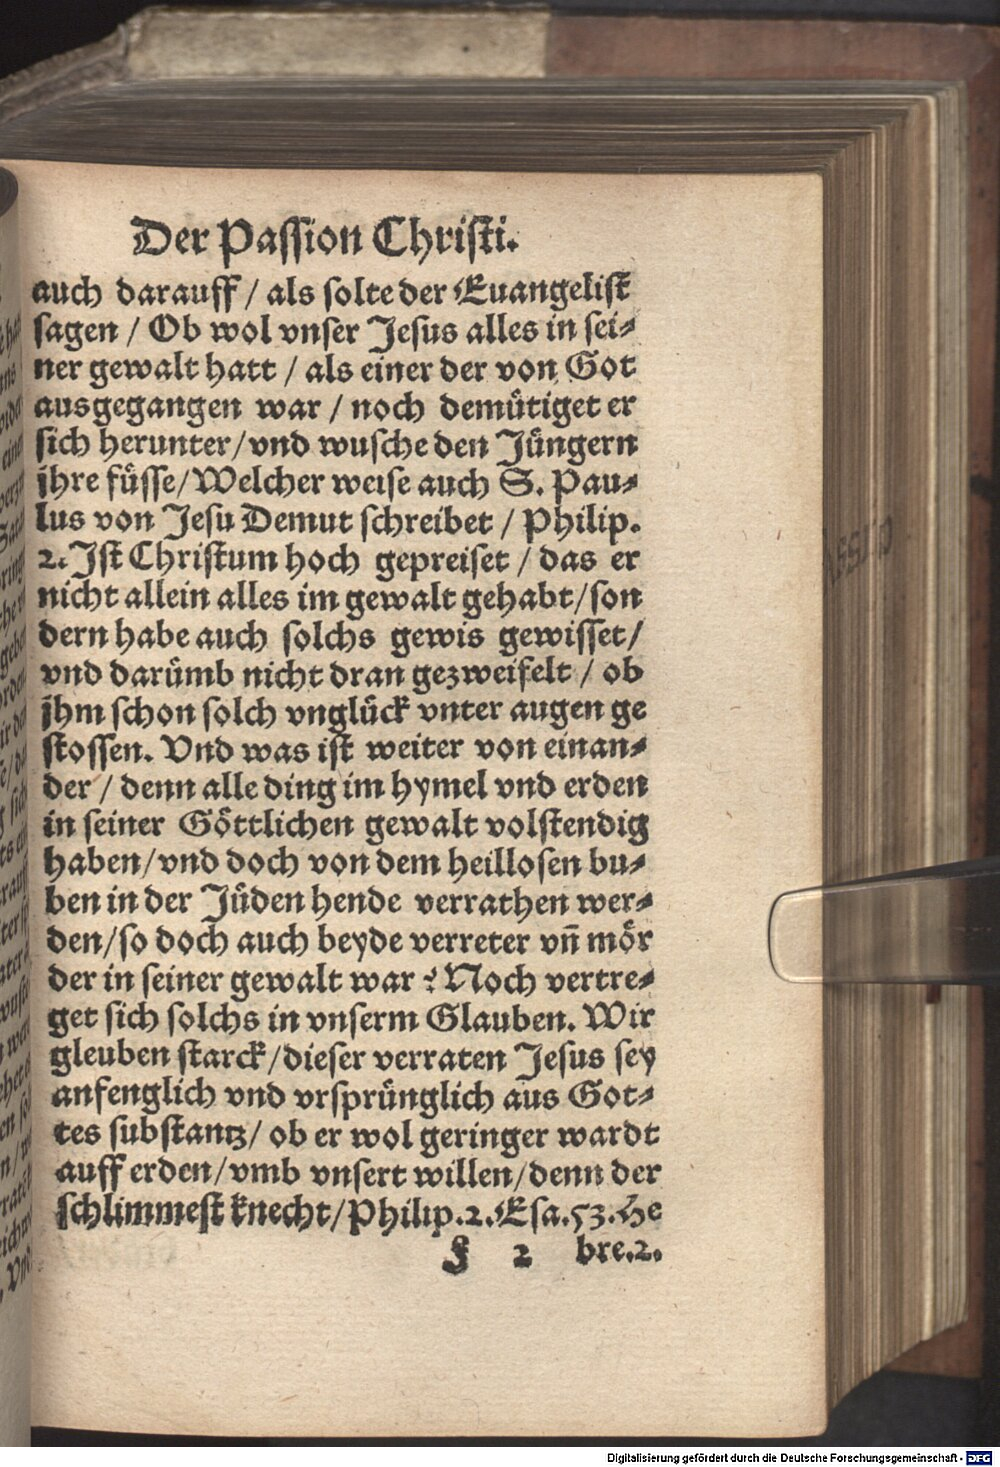 Der Passion Christi.
auch darauff / als solte der Euangelist
sagen / Ob wol vnser Jesus alles in sei⸗
ner gewalt hatt / als einer der von Got
ausgegangen war / noch demuͤtiget er
sich herunter / vnd wusche den Juͤngern
jhre fuͤsse / Welcher weise auch S. Pau⸗
lus von Jesu Demut schreibet / Philip.
2. Ist Christum hoch gepreiset / das er
nicht allein alles im gewalt gehabt / son
dern habe auch solchs gewis gewisset /
vnd daruͤmb nicht dran gezweifelt / ob
jhm schon solch vngluͤck vnter augen ge
stossen. Vnd was ist weiter von einan⸗
der / denn alle ding im hymel vnd erden
in seiner Goͤttlichen gewalt volstendig
haben / vnd doch von dem heillosen bu⸗
ben in der Juͤden hende verrathen wer⸗
den / so doch auch beyde verreter vn̄ moͤr
der in seiner gewalt war ? Noch vertre⸗
get sich solchs in vnserm Glauben. Wir
gleuben starck / dieser verraten Jesus sey
anfenglich vnd vrspruͤnglich aus Got⸗
tes substantz / ob er wol geringer wardt
auff erden / vmb vnsert willen / denn der
schlimmest knecht / Philip. 2. Esa. 53. He
F 2 bre. 2.
Digitalisierung gefördert durch die Deutsche Forschungsgemeinschaft - DFG